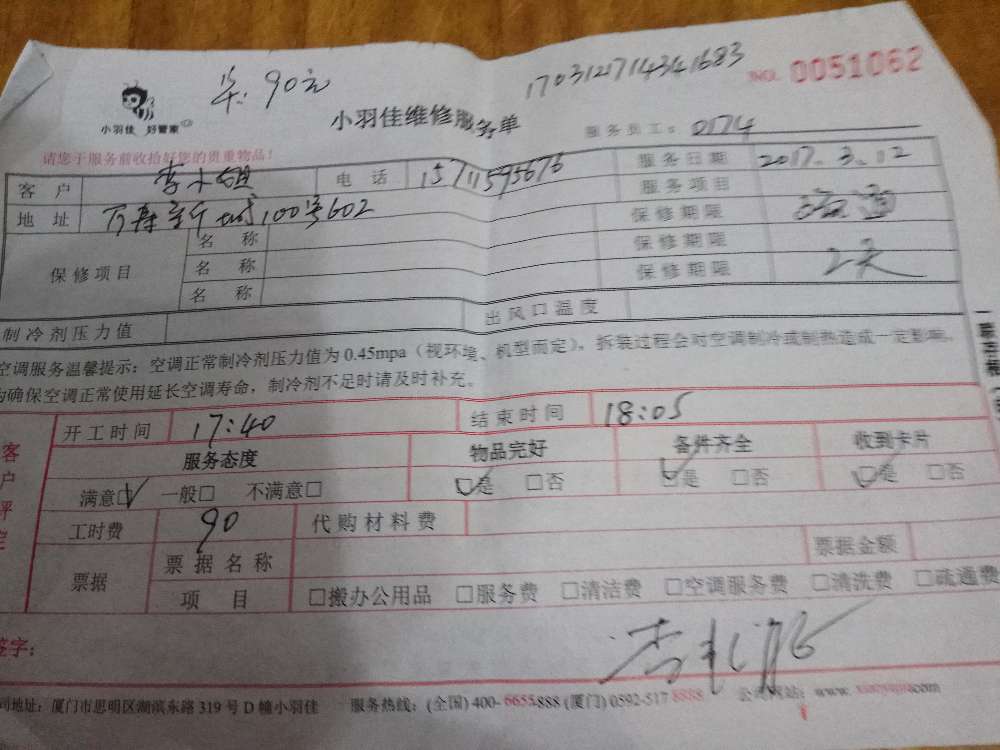 90元
17031217143341683
NO. 0051062
小羽佳 好管家
小羽佳维修服务单
服务员工：0174
请您于服务前收拾好您的贵重物品！
客户 李小姐 电话 15711595676 服务日期 2017.3.12
地址 万寿新城100号602 服务项目
保修项目 名称 保修期限
名称 保修期限
名称 保修期限 2天
制冷剂压力值 出风口温度
空调服务温馨提示：空调正常制冷剂压力值为0.45mpa（视环境、机型而定），拆装过程会对空调制冷或制热造成一定影响。
为确保空调正常使用延长空调寿命，制冷剂不足时请及时补充。
客户评定
开工时间 17:40 结束时间 18:05
服务态度 物品完好 备件齐全 收到卡片
满意□ 一般□ 不满意□ □是 □否 □是 □否 □是 □否
工时费 90 代购材料费
票据 票据名称 票据金额
项目 □搬办公用品 □服务费 □清洁费 □空调服务费 □清洗费 □疏通费
签字：
司地址：厦门市思明区湖滨东路319号D幢小羽佳 服务热线：(全国) 400-6655888 (厦门) 0592-5178888 公司网站：www.xiaoyujia.com